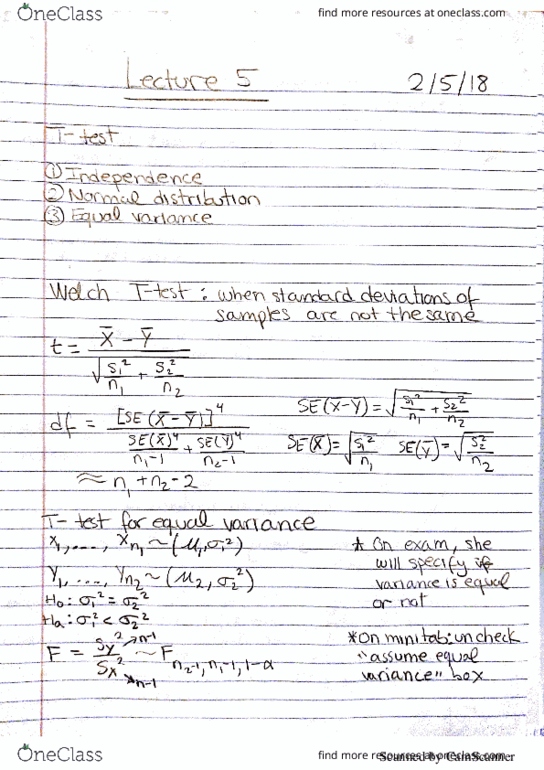 OneClass
find more resources at oneclass.com
Lecture 5
2/5/18
T-test
① Independence
② Normal distribution
③ Equal variance
Welch T-test : when standard deviations of
samples are not the same
t = X̄ - Ȳ / √(S₁²/n₁ + S₂²/n₂)
df = [SE(X̄-Ȳ)]⁴ / (SE(X̄)⁴/n₁-1 + SE(Ȳ)⁴/n₂-1)
SE(X̄-Ȳ) = √(S₁²/n₁ + S₂²/n₂)
SE(X̄) = √(S₁²/n₁) SE(Ȳ) = √(S₂²/n₂)
≈ n₁ + n₂ - 2
T-test for equal variance
X₁, ..., Xn₁ ~ (μ₁, σ₁²)
Y₁, ..., Yn₂ ~ (μ₂, σ₂²)
H₀ : σ₁² = σ₂²
Ha : σ₁² < σ₂²
F = Sy² → n-1 / Sx² → n-1 ~ F n₂-1, n₁-1, 1-α
* On exam, she
will specify if
variance is equal
or not
* On minitab: uncheck
"assume equal
variance" box
OneClass
find more resources at oneclass.com
Scanned by CamScanner